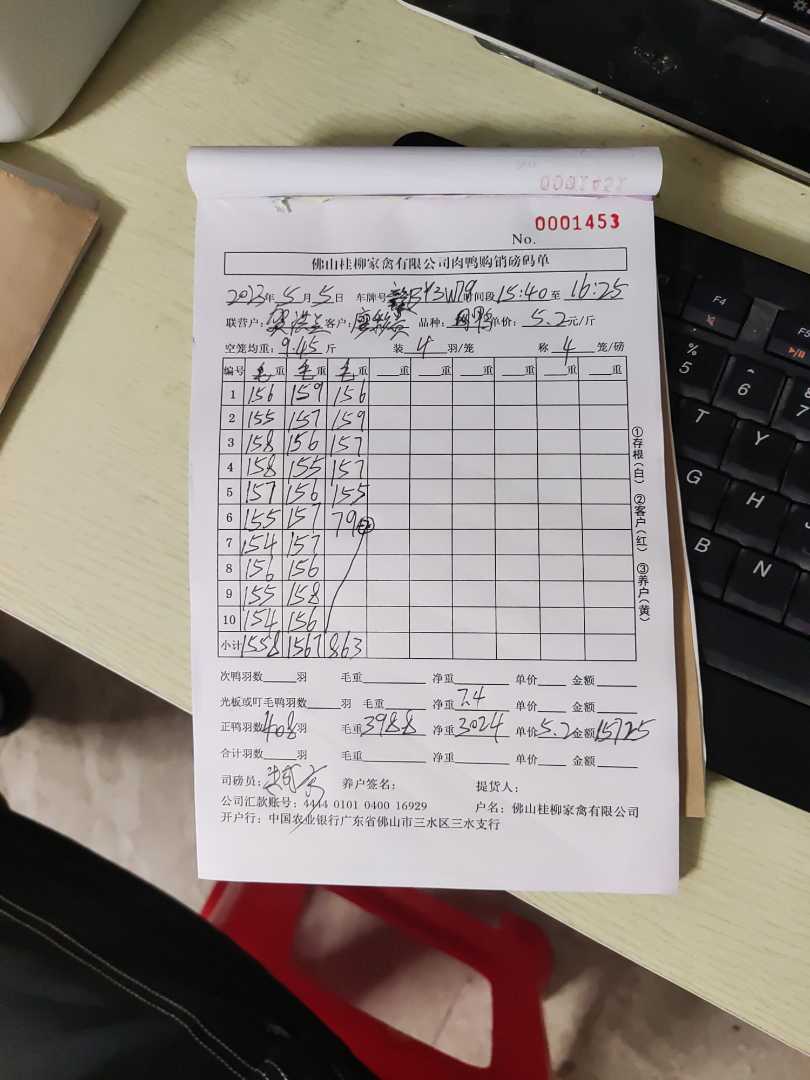 0001453
No.
佛山桂柳家禽有限公司肉鸭购销磅码单
2023年5月5日 车牌号 BY3W79 时间段15:40至16:25
联营户: 客户: 品种: 单价: 5.2元/斤
空笼均重: 9.45斤 装4羽/笼 称4笼/磅
编号 毛重 毛重 毛重 重 重 重 重 重 重
1 156 159 156
2 155 157 159
3 158 156 157
4 158 155 157
5 157 156 155
6 155 157 79
7 154 157
8 156 156
9 155 158
10 154 156
小计 1558 1567 863
次鸭羽数 羽 毛重 净重 单价 金额
光板或叮毛鸭羽数 羽 毛重 净重7.4 单价 金额
正鸭羽数408羽 毛重3988 净重3024 单价5.2 金额15725
合计羽数 羽 毛重 净重 单价 金额
司磅员: 养户签名: 提货人:
公司汇款账号: 4444 0101 0400 16929 户名: 佛山桂柳家禽有限公司
开户行: 中国农业银行广东省佛山市三水区三水支行
①存根(白) ②客户(红) ③养户(黄)
F4
F5
%
5
6
7
T
Y
G
H
B
N